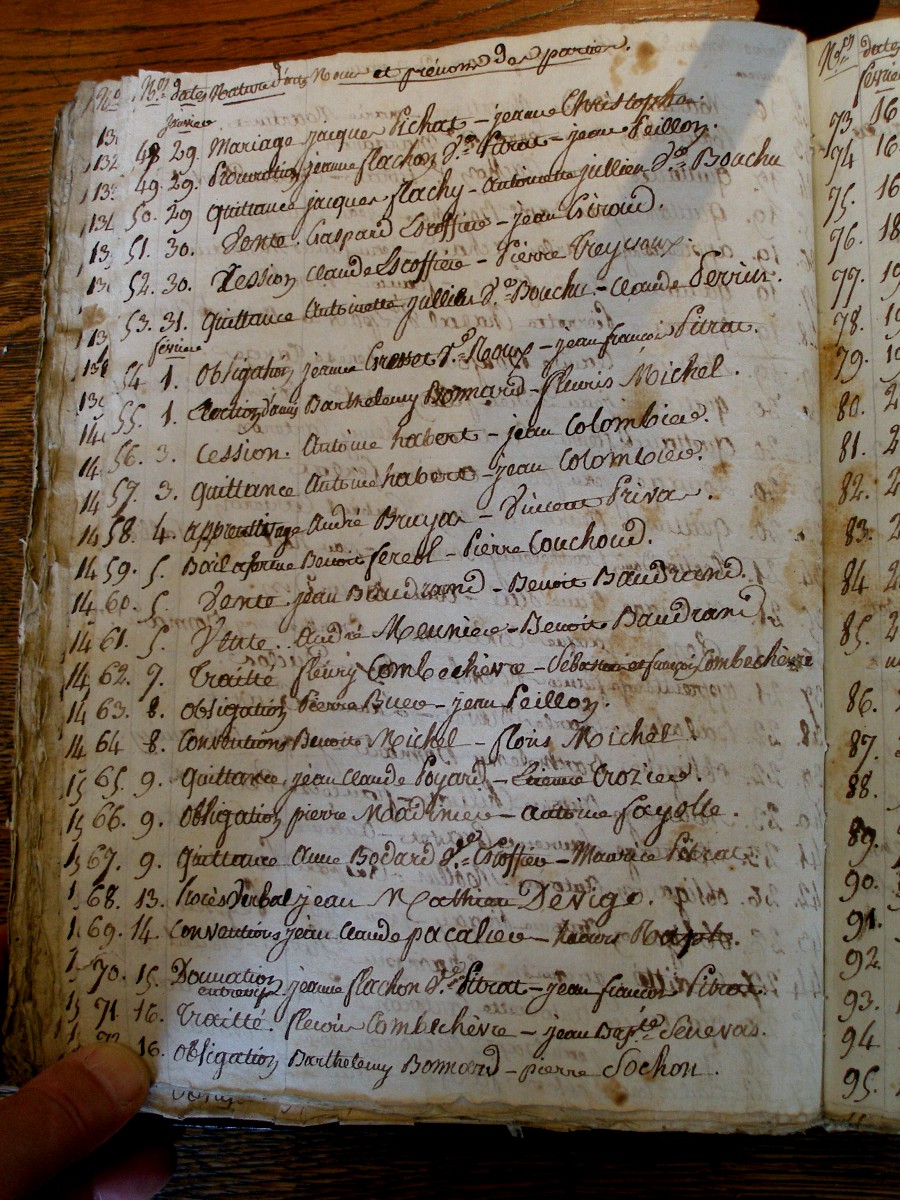 Nos. dates Nature d'acte Noms et prénoms des parties.
Janvier
48 29. Mariage jacques Pichat – jeanne Christophe.
132 49. 29. Procuration jeanne flachon Ve. Pitrat – jean Peillon.
50. 29 Quittance jacques flachy – Antoinette jullien Ve. Bouchu
51. 30. Vente. Gaspard Escoffier – jean Giroud.
52. 30. Cession Claude Escoffier – Pierre
53. 31. Quittance Antoinette jullien Ve. Bouchu – Claude Perrin.
février
54 1. Obligation jeanne Ve. Roux – jean françois Pitrat.
55. 1. Barthelemy Bonnard – fleuris Michel.
56. 3. Cession. Antoine habert – jean Colombier.
57. 3. Quittance Antoine habert – jean Colombier.
14 58. 4. apprentissage André Bruyas – Vincent Privas.
14 59. 5. Bail a ferme Benoit fereol – Pierre Couchoud.
14 60. 5. Vente jean Baudrand – Benoit Baudrand.
14 61. 5. Vente. André Meunier – Benoit Baudrand
14 62. 7. Traitté fleury Combechèvre – Sébastien et françois Combechèvre
14 63. 8. Obligation Pierre – jean Peillon.
14 64 8. Conventions Benoit Michel – floris Michel
15 65. 9. Quittance jean Claude Poyard – Etienne Crozier.
15 66. 9. Obligation pierre – antoine fayolle.
15 67. 9. Quittance Anne Bodard Ve. Escoffier – Maurice Pitrat
68. 13. Procès Verbal jean Mathieu Devigo.
69. 14. Conventions jean Claude pacalier –
70. 15. Donnation entrevifs jeanne flachon Ve. Pitrat – jean françois Pitrat.
71 16. Traitté. fleuris Combechèvre – jean Bapte. Senevas.
16. Obligation Barthelemy Bonnard – pierre Sochon.
Nos. dates
février
73. 16
74 16.
75. 16
76. 18
77. 19
78. 19
79. 19
80. 2
81. 2
82. 2
83. 2
84 2
85. 2
86. 2
87. 2
88.
89.
90.
91.
92
93.
94
95.